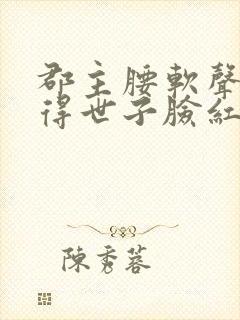 郡主腰軟聲
得世子臉紅
陳秀蓉